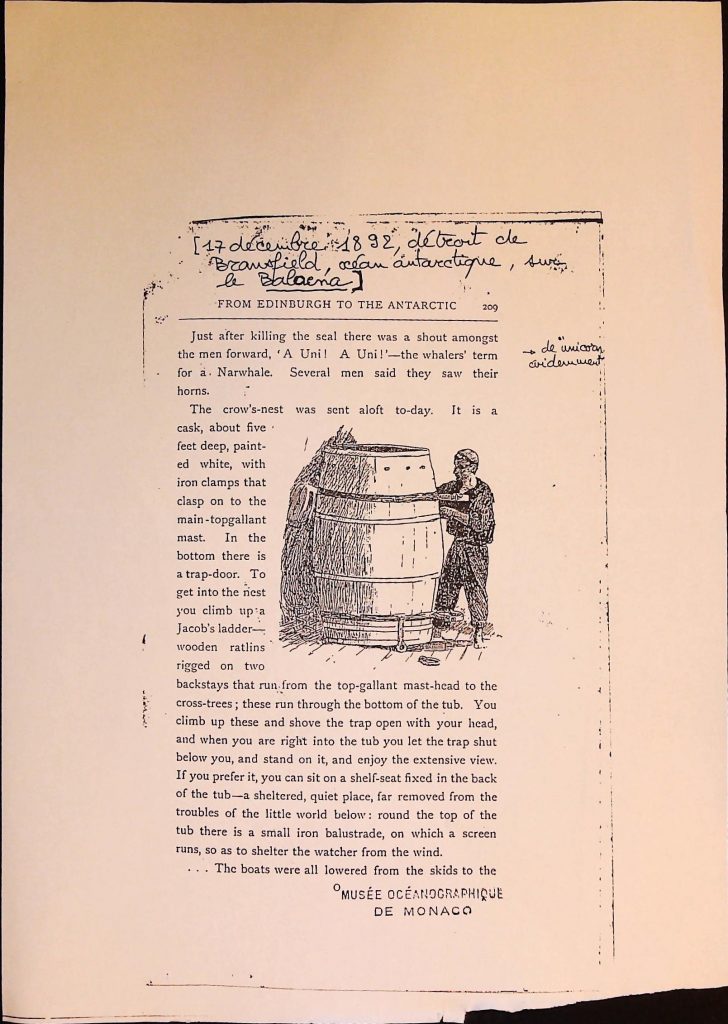 [17 décembre 1892, détroit de
Bransfield, océan antarctique, sur
le Balaena]
FROM EDINBURGH TO THE ANTARCTIC 209
Just after killing the seal there was a shout amongst
the men forward, ‘A Uni! A Uni!’—the whalers’ term
for a Narwhale. Several men said they saw their
horns.
→ de "unicorn"
évidemment
The crow’s-nest was sent aloft to-day. It is a
cask, about five
feet deep, paint-
ed white, with
iron clamps that
clasp on to the
main-topgallant
mast. In the
bottom there is
a trap-door. To
get into the nest
you climb up a
Jacob’s ladder—
wooden ratlins
rigged on two
backstays that run from the top-gallant mast-head to the
cross-trees; these run through the bottom of the tub. You
climb up these and shove the trap open with your head,
and when you are right into the tub you let the trap shut
below you, and stand on it, and enjoy the extensive view.
If you prefer it, you can sit on a shelf-seat fixed in the back
of the tub—a sheltered, quiet place, far removed from the
troubles of the little world below: round the top of the
tub there is a small iron balustrade, on which a screen
runs, so as to shelter the watcher from the wind.
. . . The boats were all lowered from the skids to the
MUSÉE OCÉANOGRAPHIQUE
DE MONACO